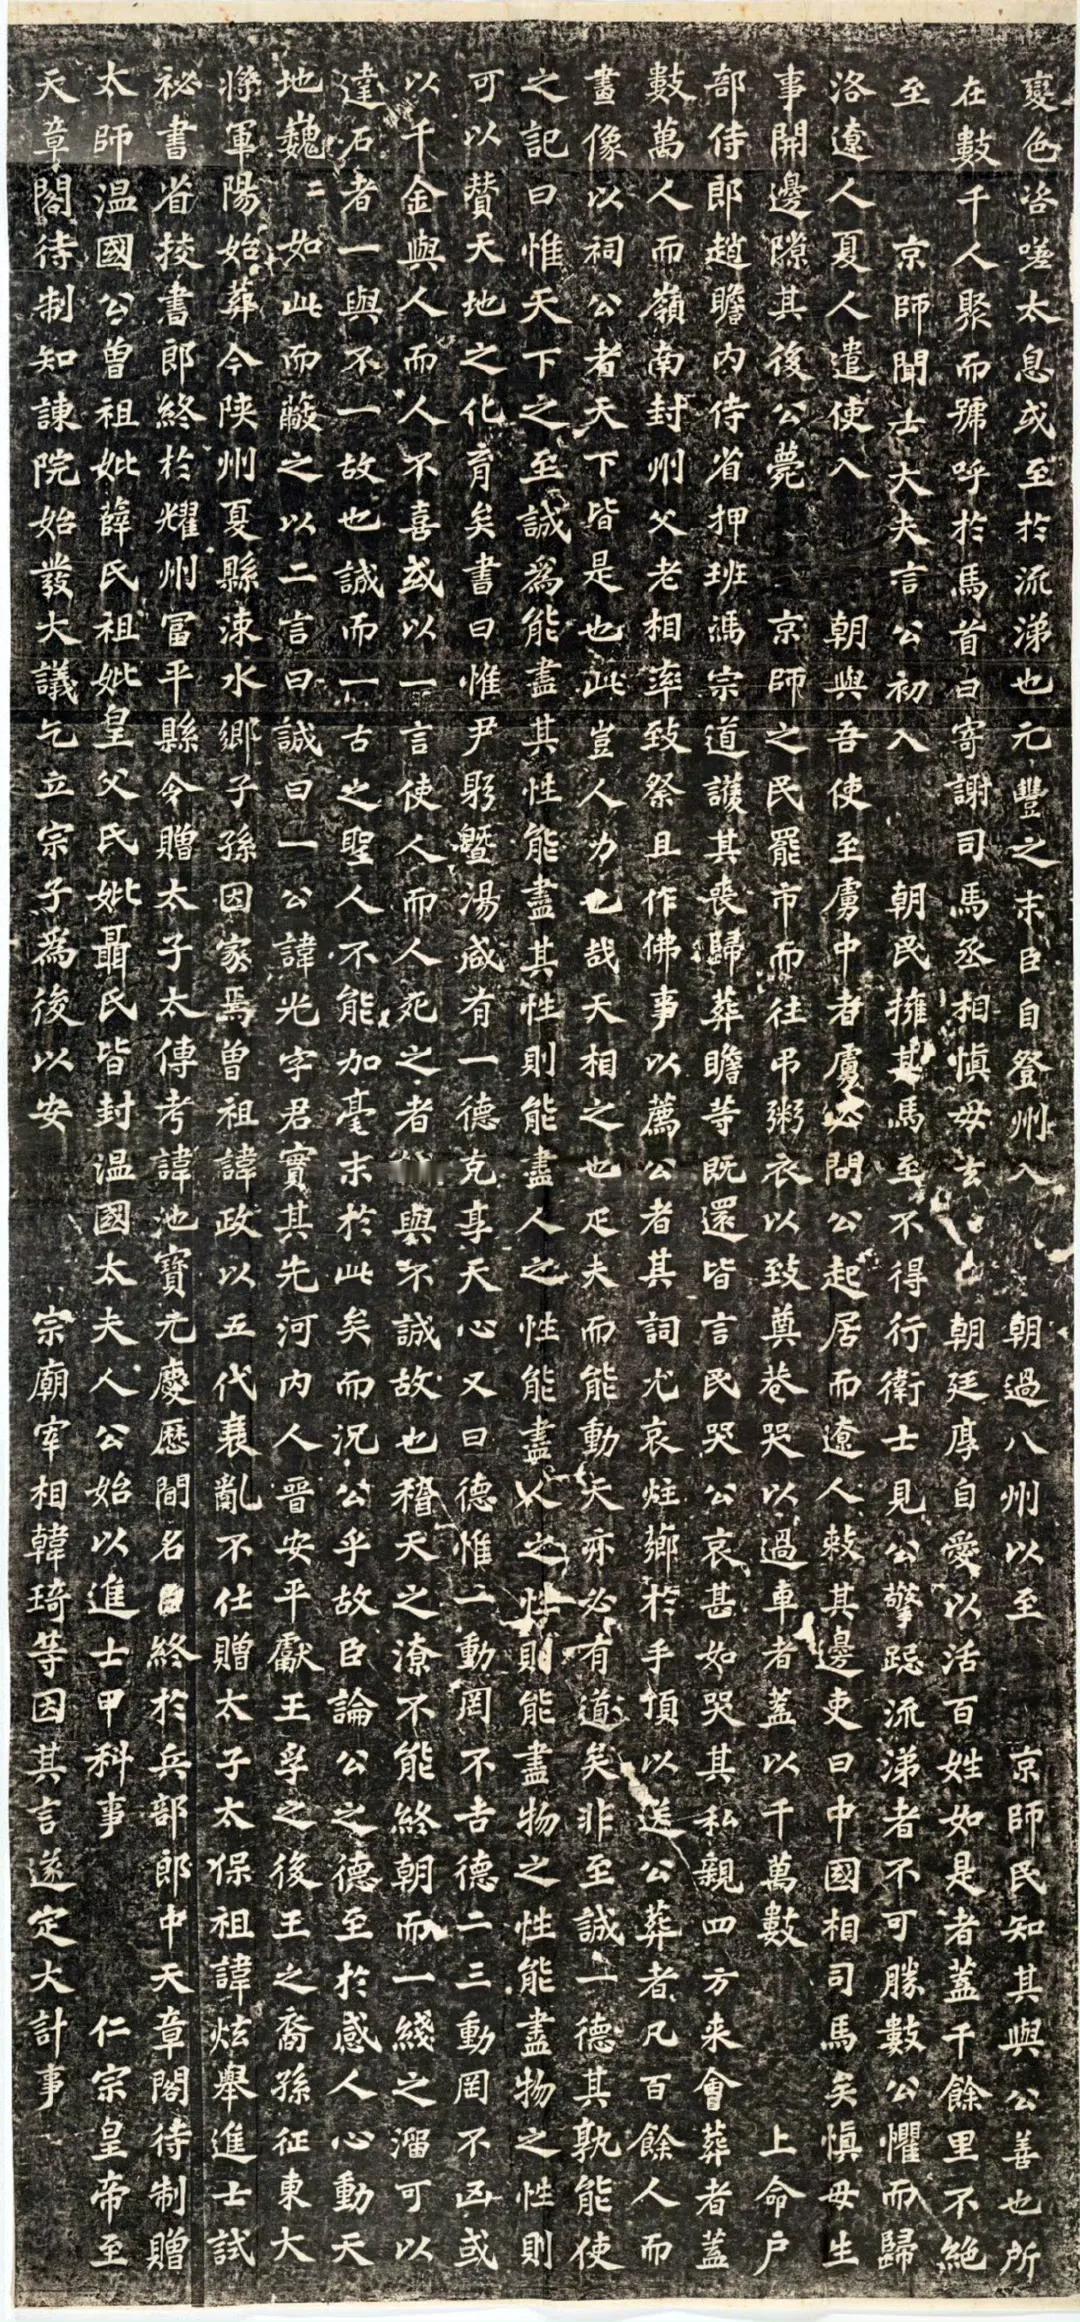 變色咨嗟太息或至於流涕也元豐之末臣自登州入 朝過八州以至 京師民知其與公善也所
在數千人聚而號呼於馬首曰寄謝司馬丞相慎毋去 朝廷厚自愛以活百姓如是者蓋千餘里不絕
至 京師聞士大夫言公初入 朝民擁其馬至不得行衛士見公擎跽流涕者不可勝數公懼而歸
洛遼人夏人遣使入 朝與吾使至虜中者虜必問公起居而遼人敕其邊吏曰中國相司馬矣慎毋生
事開邊隙其後公薨 京師之民罷市而往弔粥衣以致奠巷哭以過車者蓋以千萬數 上命戶
部侍郎趙瞻內侍省押班馮宗道護其喪歸葬瞻等既還皆言民哭公哀甚如哭其私親四方來會葬者蓋
數萬人而嶺南封州父老相率致祭且作佛事以薦公者其詞尤哀炷薌於手頂以送公葬者凡百餘人而
畫像以祠公者天下皆是也此豈人力也哉天相之也疋夫而能動天亦必有道矣非至誠一德其孰能使
之記曰惟天下之至誠為能盡其性能盡其性則能盡人之性能盡人之性則能盡物之性能盡物之性則
可以贊天地之化育矣書曰惟尹躬暨湯咸有一德克享天心又曰德惟一動罔不吉德二三動罔不凶或
以千金與人而人不喜或以一言使人而人死之者誠與不誠故也稽天之潦不能終朝而一綫之溜可以
達石者一與不一故也誠而一古之聖人不能加毫末於此矣而況公乎故臣論公之德至於感人心動天
地巍〻如此而蔽之以二言曰誠曰一公諱光字君實其先河內人晉安平獻王孚之後王之裔孫征東大
將軍陽始葬今陝州夏縣涑水鄉子孫因家焉曾祖諱政以五代衰亂不仕贈太子太保祖諱炫舉進士試
祕書省挍書郎終於耀州冨平縣令贈太子太傅考諱池寶元慶曆間名臣終於兵部郎中天章閣待制贈
太師溫國公曾祖妣薛氏祖妣皇父氏妣聶氏皆封溫國太夫人公始以進士甲科事 仁宗皇帝至
天章閣待制知諫院始發大議乞立宗子為後以安 宗廟宰相韓琦等因其言遂定大計事